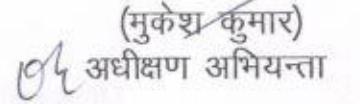 (मुकेश कुमार)
अधीक्षण अभियन्ता